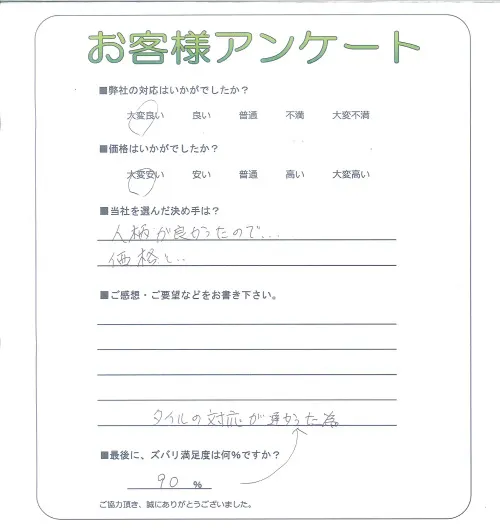 お客様アンケート
■弊社の対応はいかがでしたか？
大変良い 良い 普通 不満 大変不満
■価格はいかがでしたか？
大変安い 安い 普通 高い 大変高い
■当社を選んだ決め手は？
人柄が良かったので...
価格も..
■ご感想・ご要望などをお書き下さい。
タイルの対応が遅かった為
■最後に、ズバリ満足度は何%ですか？
90 %
ご協力頂き、誠にありがとうございました。